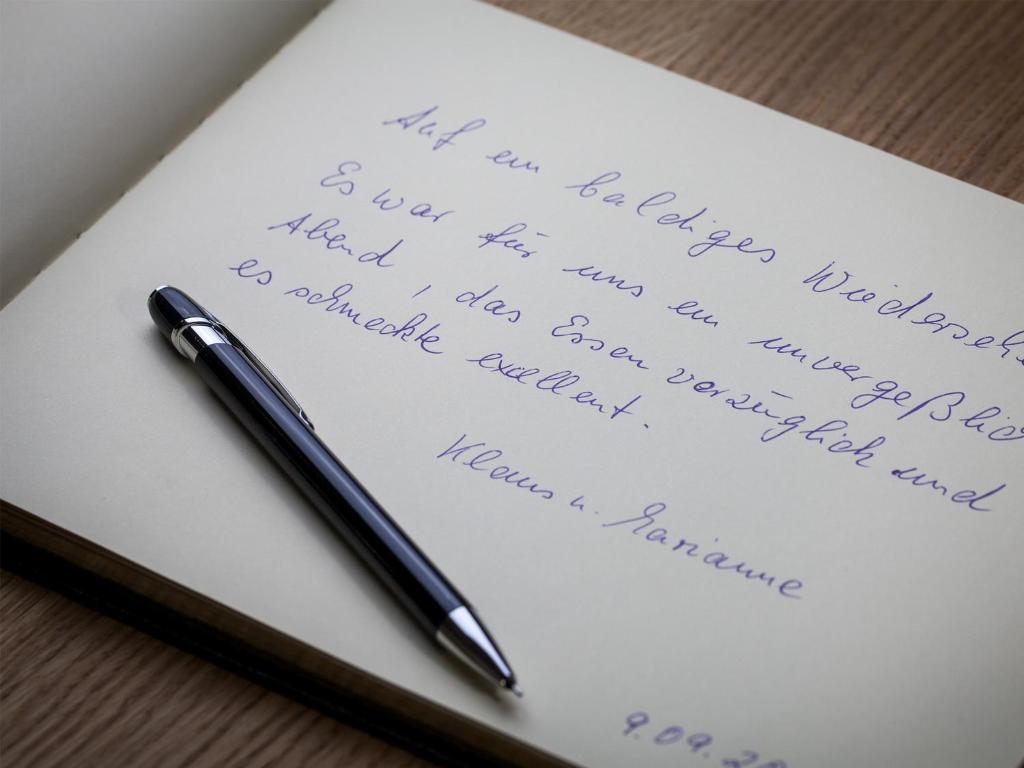 Auf ein baldiges Wiederseh
Es war für uns ein unvergeßlic
Abend, das Essen vorzüglich und
es schmeckte exellent.
Klaus u. Marianne
9.09.20